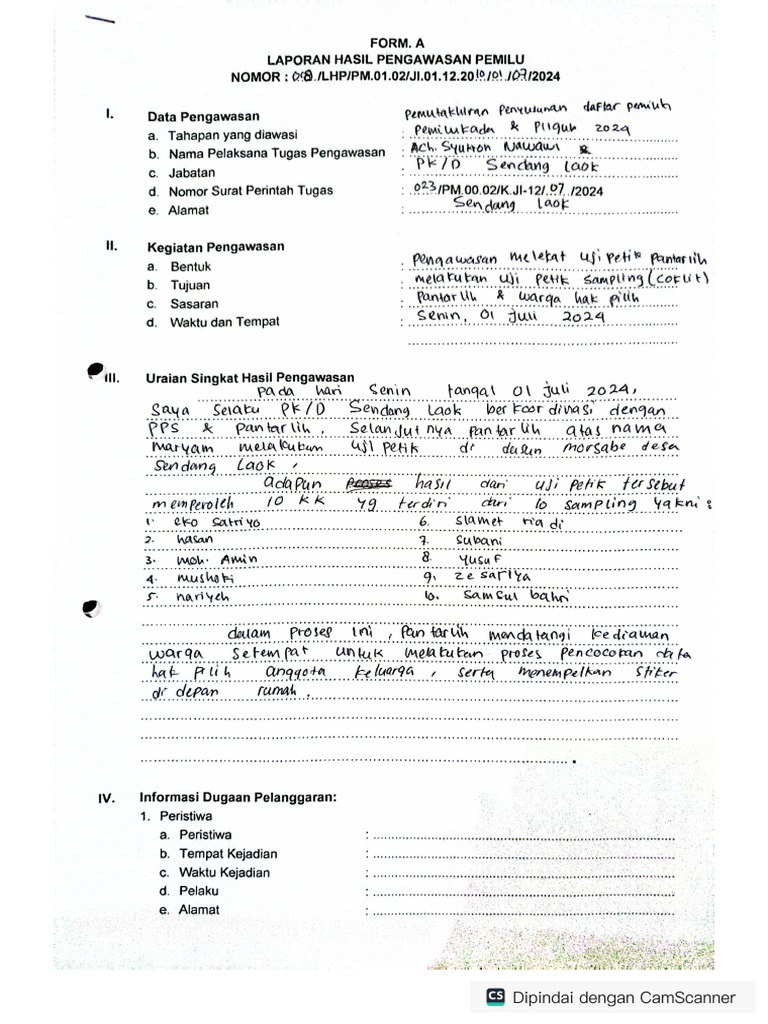 FORM. A
LAPORAN HASIL PENGAWASAN PEMILU
NOMOR : 018./LHP/PM.01.02/JI.01.12.2010/01/07/2024
I. Data Pengawasan
pemutakhiran Penyusunan daftar pemilih
a. Tahapan yang diawasi : pemilukada & Pilgub 2024
b. Nama Pelaksana Tugas Pengawasan : Ach. Syukron Nawawi &
c. Jabatan : PK/D Sendang Laok
d. Nomor Surat Perintah Tugas : 023/PM.00.02/K.JI-12/.07./2024
e. Alamat : Sendang Laok
II. Kegiatan Pengawasan
a. Bentuk : Pengawasan melekat uji Petik Pantarlih
b. Tujuan : melakukan uji petik sampling (coklit)
c. Sasaran : Pantarlih & warga hak pilih
d. Waktu dan Tempat : Senin, 01 juli 2024
III. Uraian Singkat Hasil Pengawasan
Pada hari Senin tangal 01 juli 2024,
Saya Selaku PK/D Sendang Laok berkoordinasi dengan
PPS & Pantarlih. Selanjutnya pantarlih atas nama
maryam melakukan uji petik di dusun morsabe desa
Sendang Laok,
adapun hasil dari uji petik tersebut
memperoleh 10 KK yg terdiri dari 10 sampling yakni:
1. eko satriyo 6. slamet riadi
2. hasan 7. subani
3. moh. Amin 8. yusuf
4. musheki 9. zesariya
5. nariyeh 10. samsul bahri
dalam proses ini, Pantarlih mendatangi kediaman
warga setempat untuk melakukan proses pencocokan data
hak pilih anggota keluarga, serta menempelkan stiker
di depan rumah.
IV. Informasi Dugaan Pelanggaran:
1. Peristiwa
a. Peristiwa :
b. Tempat Kejadian :
c. Waktu Kejadian :
d. Pelaku :
e. Alamat :
CS Dipindai dengan CamScanner